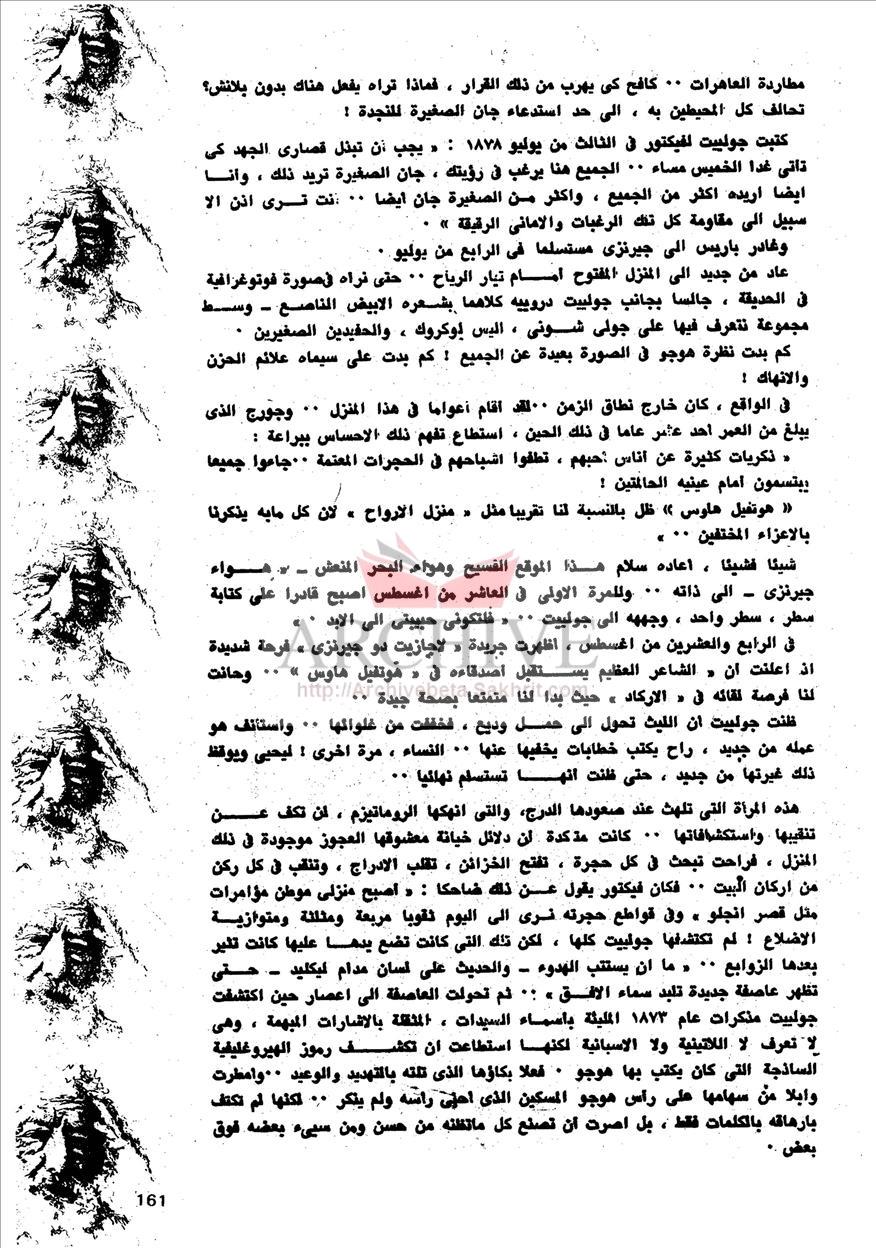 مطاردة العاهرات ٠٠ كافح كى يهرب من ذلك القرار ، فماذا تراه يفعل هناك بدون بلانش؟
تحالف كل المحيطين به ، الى حد استدعاء جان الصغيرة للنجدة !
كتبت جولييت لفيكتور فى الثالث من يوليو ١٨٧٨ : « يجب أن تبذل قصارى الجهد كى
تأتى غدا الخميس مساء ٠٠ الجميع هنا يرغب فى رؤيتك ، جان الصغيرة تريد ذلك ، وأنــا
ايضا اريده اكثر من الجميع ، واكثر مـن الصغيرة جان أيضا ٠٠ أنت تــرى اذن الا
سبيل الى مقاومة كل تلك الرغبات والامانى الرقيقة » ٠
وغادر باريس الى جيرنزى مستسلما فى الرابع من يوليو ٠
عاد من جديد الى المنزل المفتوح أمــام تيار الرياح ٠٠ حتى نراه فى صورة فوتوغرافية
فى الحديقة ، جالسا بجانب جولييت دروييه كلاهما بشـعره الابيض الناصـع ــ وسـط
مجموعة نتعرف فيها على جولى شــونى ، اليس لوكروك ، والحفيدين الصغيرين ٠
كم بدت نظرة هوجو فى الصورة بعيدة عن الجميع ! كم بدت على سيماه علائم الحزن
والانهاك !
فى الواقع ، كان خارج نطاق الزمن ٠٠ لقد أقام أعواما فى هذا المنزل ٠٠ وجورج الذى
يبلغ من العمر احد عشر عاما فى ذلك الحين ، استطاع تفهم ذلك الاحساس ببراعة :
« ذكريات كثيرة عن أناس أحبهم ، تطفوا اشباحهم فى الحجرات المعتمة ٠٠ جاءوا جميعا
يبتسمون أمام عينيه الحالمتين !
« هوتفيل هاوس » ظل بالنسبة لنا تقريبا مثل « منزل الارواح » لان كل مابه يذكرنا
بالاعزاء المختفين ٠٠ »
شيئا فشيئا ، أعاده سلام هــذا الموقع الفسيح وهواء البحر المنعش ــ « هــواء
جيرنزى ــ الى ذاته ٠٠ وللمرة الاولى فى العاشر من اغسطس اصبح قادرا على كتابة
سطر ، سطر واحد ، وجهه الى جولييت ٠٠ « فلتكونى حبيبتى الى الابد ٠ »
فى الرابع والعشرين من اغسطس ، أظهرت جريدة « لاجازيت دو جيرنزى » فرحة شديدة
اذ اعلنت ان « الشاعر العظيم يســتقبل أصدقاءه فى « هوتفيل هاوس » ٠٠ وحانت
لنا فرصة لقائه فى « الاركاد » حيث بدا لنا متمتعا بصحة جيدة ٠٠
ظنت جولييت ان الليث تحول الى حمــل وديع ، فخففت من غلوائها ٠٠ واستأنف هو
عمله من جديد ، راح يكتب خطابات يخفيها عنها ٠٠ النساء ، مرة اخرى ! ليحيى ويوقظ
ذلك غيرتها من جديد ، حتى ظنت أنهــا تستسلم نهائيا ٠٠
هذه المرأة التى تلهث عند صعودها الدرج، والتى انهكها الروماتيزم ، لن تكف عــن
تنقيبها واستكشافاتها ٠٠ كانت متأكدة ان دلائل خيانة معشوقها العجوز موجودة فى ذلك
المنزل ، فراحت تبحث فى كل حجرة ، تفتح الخزائن ، تقلب الادراج ، وتنقب فى كل ركن
من اركان البيت ٠٠ فكان فيكتور يقول عـن ذلك ضاحكا : « أصبح منزلى موطن مؤامرات
مثل قصر انجلو » وفى قواطع حجرته نـرى الى اليوم ثقوبا مربعة ومثلثة ومتوازيــة
الاضلاع ! لم تكتشفها جولييت كلها ، لكن تلك التى كانت تضع يدهــا عليها كانت تثير
بعدها الزوابع ٠٠ « ما ان يستتب الهدوء ــ والحديث على لسان مدام ليكليد ــ حــتى
تظهر عاصفة جديدة تلبد سماء الافــق » ٠٠ ثم تحولت العاصفة الى اعصار حين اكتشفت
جولييت مذكرات عام ١٨٧٣ المليئة بأسمـاء السيدات ، المثقلة بالاشارات المبهمة ، وهى
لا تعرف لا اللاتينية ولا الاسبانية لكنهــا استطاعت ان تكشــف رموز الهيروغليفية
الساذجة التى كان يكتب بها هوجو ٠ فعلا بكاؤها الذى تلته بالتهديد والوعيد ٠٠ وامطرت
وابلا من سهامها على رأس هوجو المسكين الذى أحنى رأسه ولم ينكر ٠٠ لكنها لم تكتف
بارهاقه بالكلمات فقط ، بل اصرت ان تصنع كل ماتظنه من حسن ومن سيىء بعضه فوق
بعض ٠
ARCHIVE
http://Archivebeta.Sakhrit.com
161